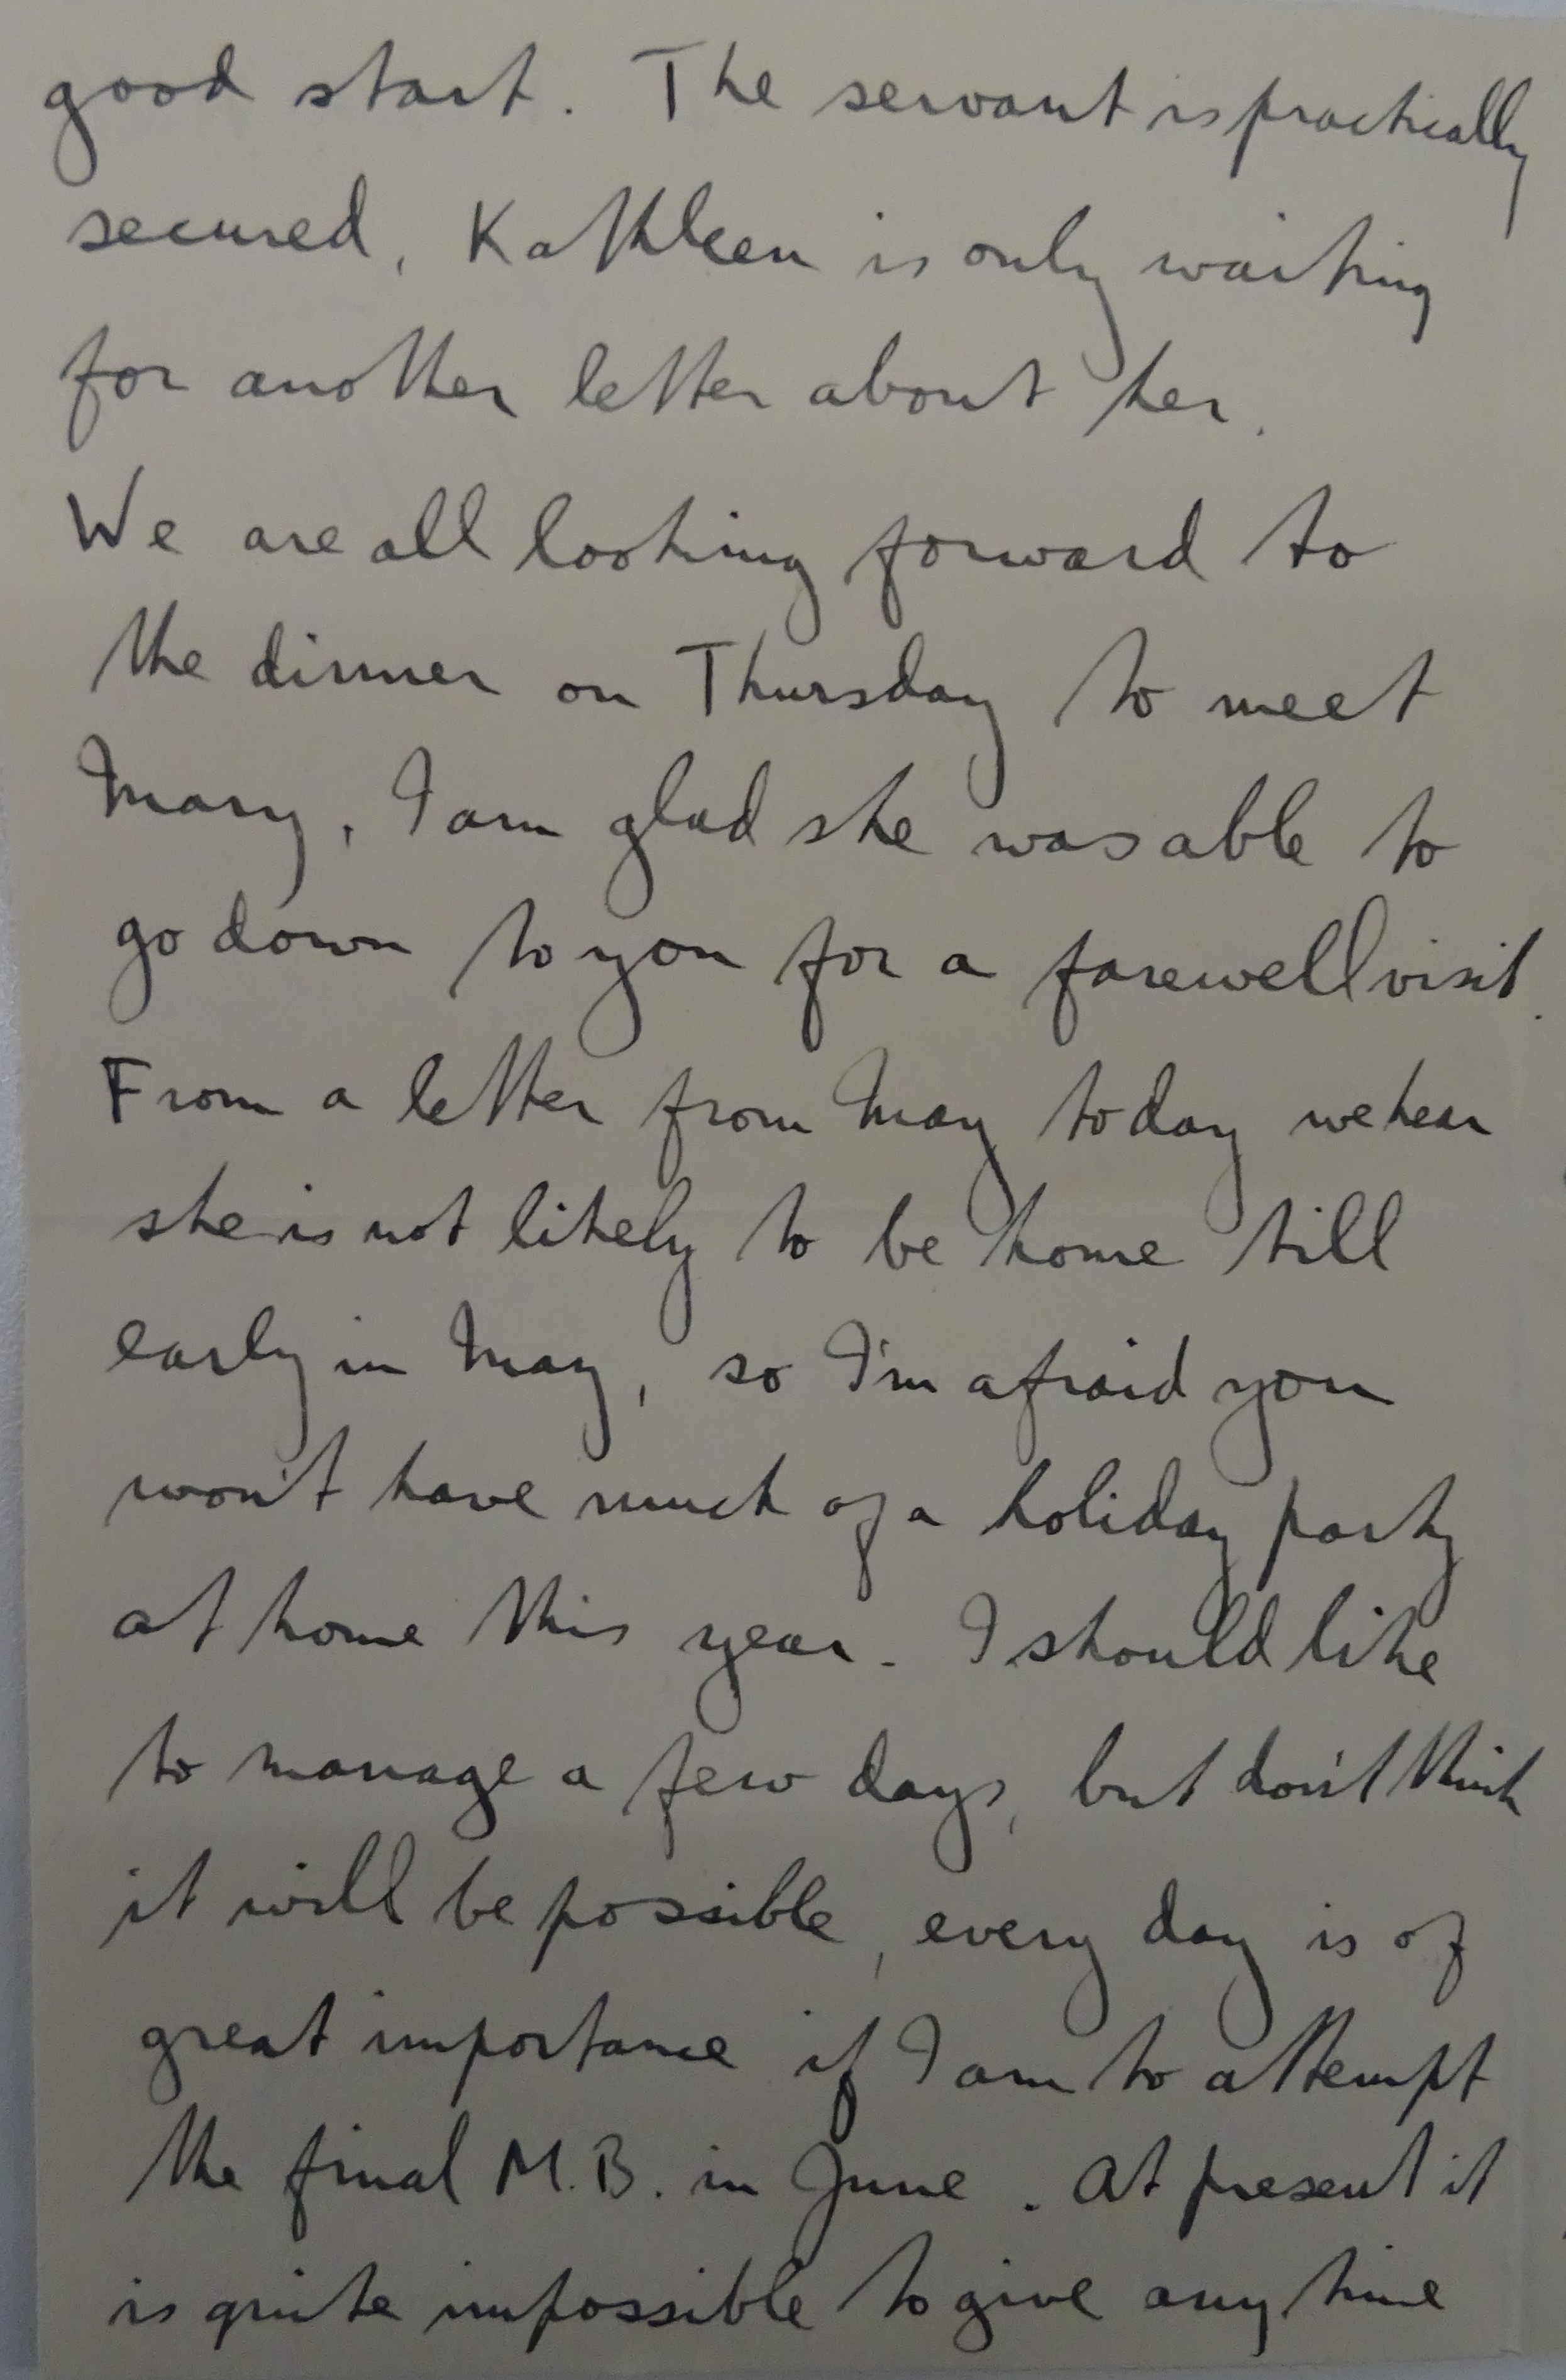 good start. The servant is practically
secured, Kathleen is only waiting
for another letter about her.
We are all looking forward to
the dinner on Thursday to meet
Mary, I am glad she was able to
go down to you for a farewell visit.
From a letter from May today we hear
she is not likely to be home till
early in May, so I'm afraid you
won't have much of a holiday party
at home this year. I should like
to manage a few days, but don't think
it will be possible, every day is of
great importance if I am to attempt
the final M.B. in June. At present it
is quite impossible to give any time